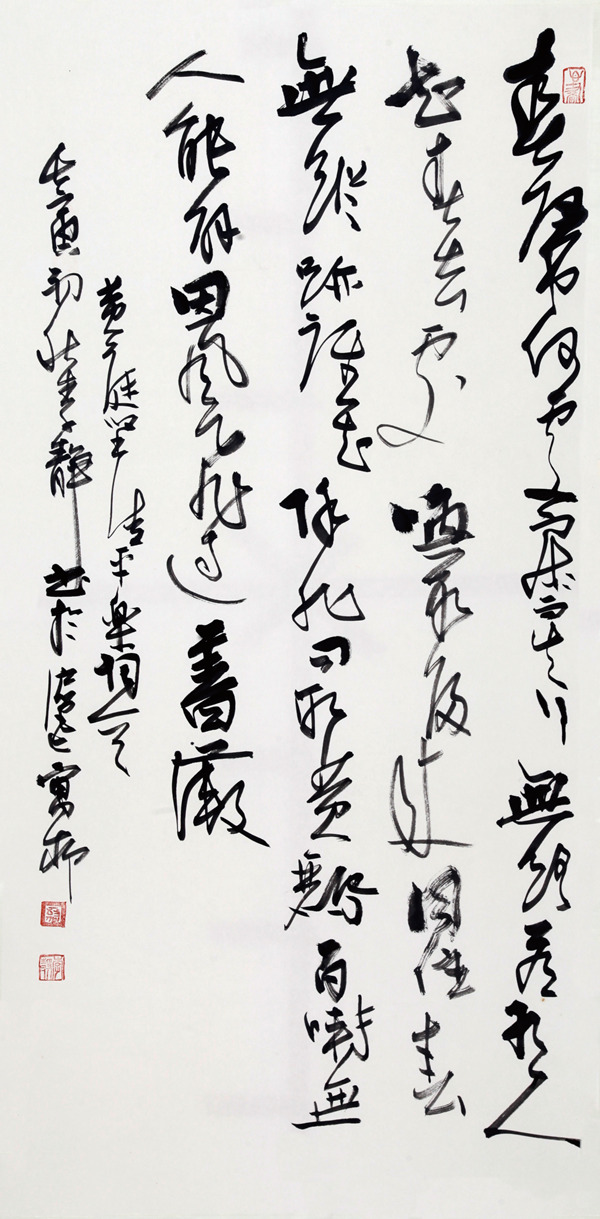 春歸何處寂寞無行路若有人
知春去處喚取歸來同住春
無蹤跡誰知除非問取黃鸝百囀無
人能解因風飛過薔薇
黃庭堅清平樂詞一首
壬寅初秋子靜書於